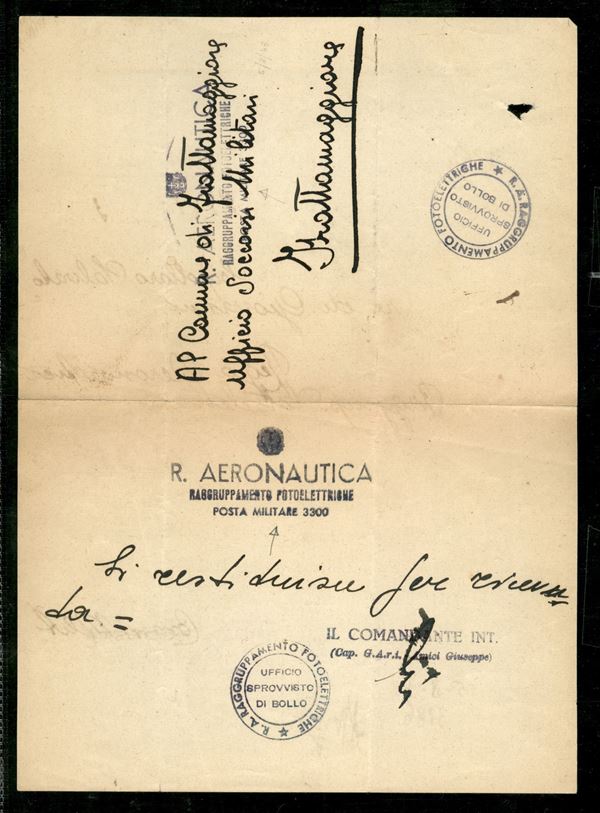 Al Comune di Frattamaggiore
Ufficio Soccorsi Militari
Frattamaggiore
RAGGRUPPAMENTO FOTOELETTRICHE
R. A. RAGGRUPPAMENTO FOTOELETTRICHE
UFFICIO
SPROVVISTO
DI BOLLO
R. AERONAUTICA
RAGGRUPPAMENTO FOTOELETTRICHE
POSTA MILITARE 3300
Si restituisce per
ta. =
IL COMANDANTE INT.
(Cap. G.A.r.i. Amici Giuseppe)
R. A. RAGGRUPPAMENTO FOTOELETTRICHE
UFFICIO
SPROVVISTO
DI BOLLO